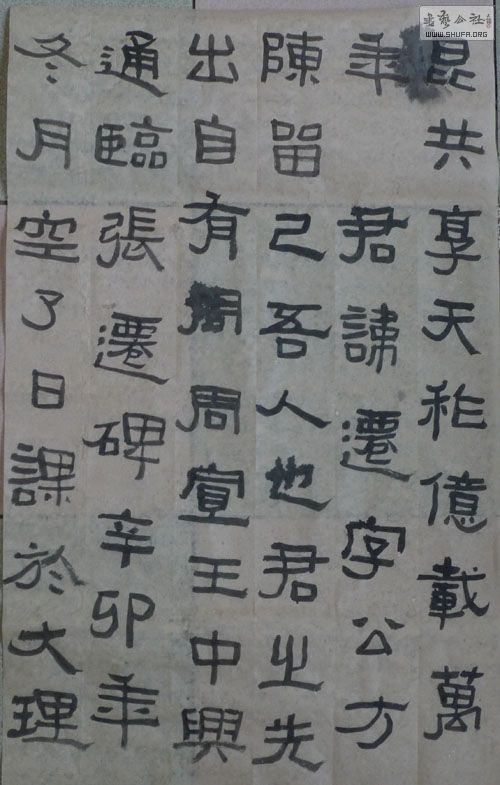 昆共享天祚億載萬
年君諱遷字公方
陳留己吾人也君之先
出自有周周宣王中興
通臨張遷碑辛卯年
冬月空了日課於大理
书艺公社
WWW.SHUFA.ORG